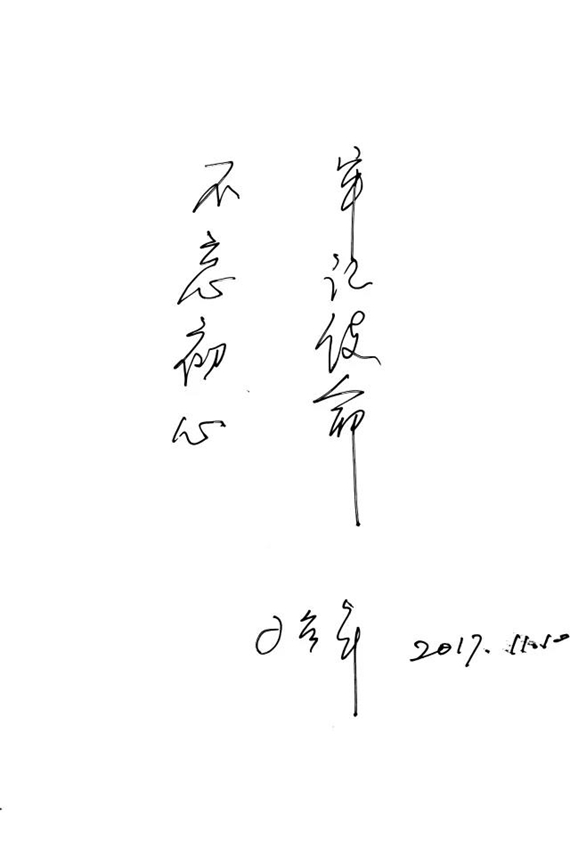 不忘初心
牢记使命
2017.11.10